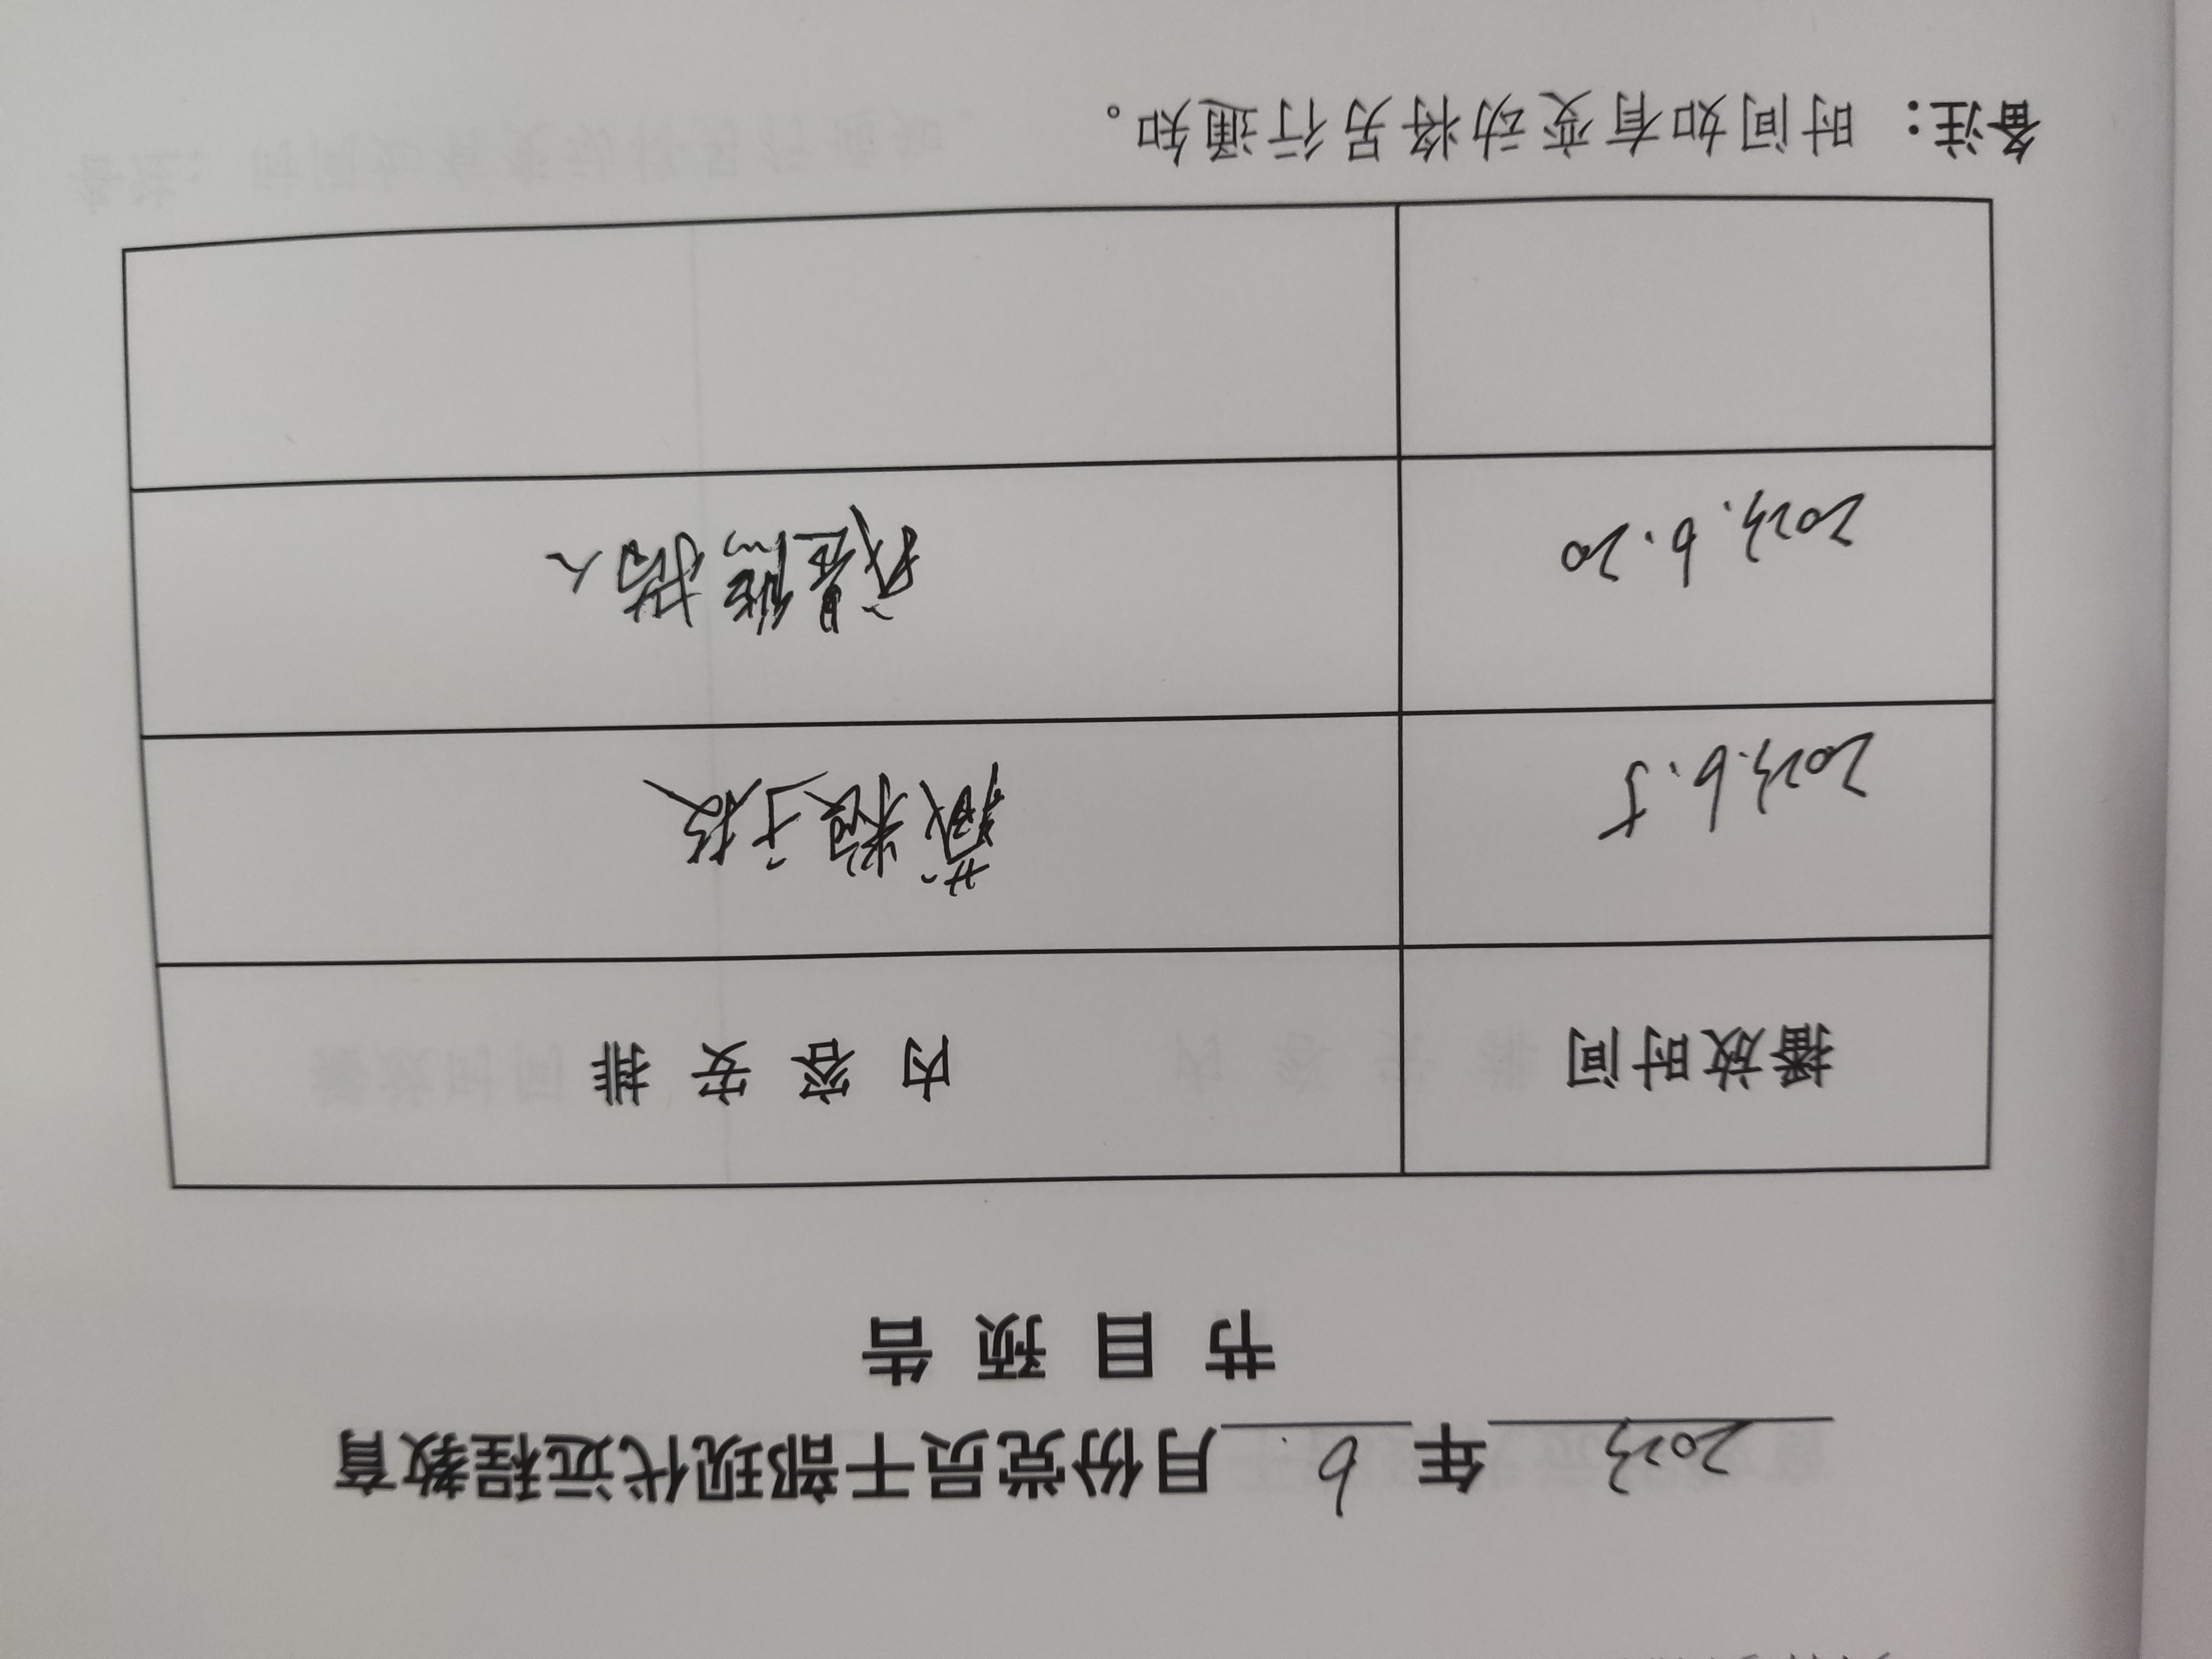 2023 年 6. 月份党员干部现代远程教育
节目预告
播放时间 内容安排
2023.6.5 藏粮于技
2023.6.20
备注：时间如有变动将另行通知。